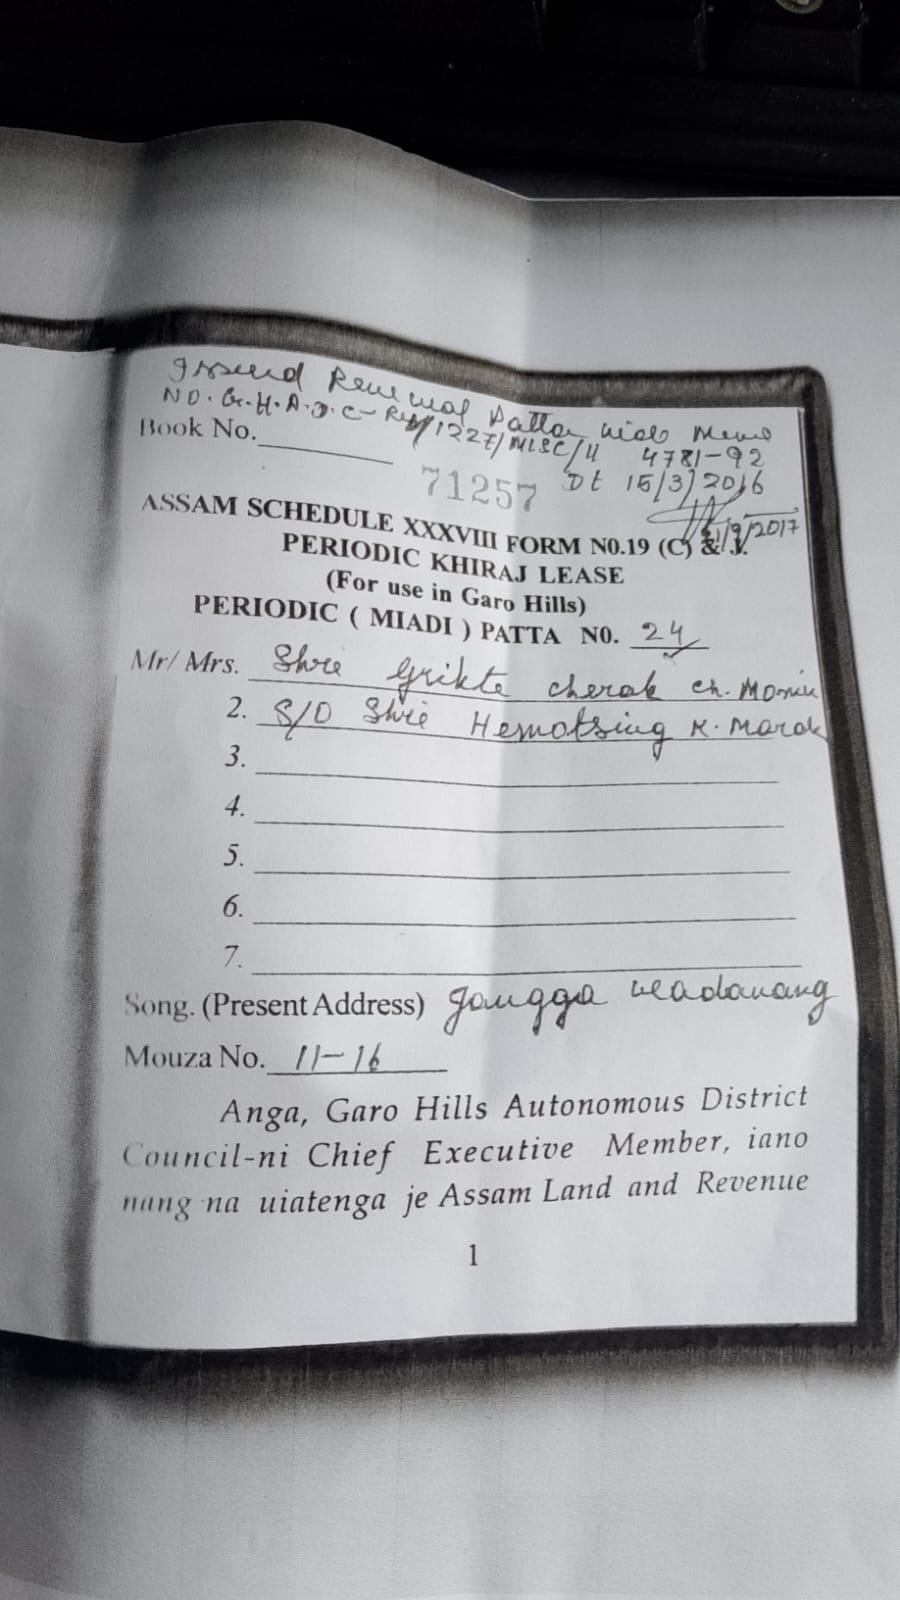 Issued Renewal Patta vide Memo
NO. G.H.A.D.C- Rev/1227/MISC/11 4781-92
Dt 15/3/2016
Book No.
71257
/9/2017
ASSAM SCHEDULE XXXVIII FORM N0.19 (C) & J.
PERIODIC KHIRAJ LEASE
(For use in Garo Hills)
PERIODIC ( MIADI ) PATTA N0. 24
Mr/ Mrs. Shri Grikte cherak ch. Momin
2. S/O Shri Hemotsing K. Marak
3.
4.
5.
6.
7.
Song. (Present Address)
Mouza No. 11-16
Anga, Garo Hills Autonomous District
Council-ni Chief Executive Member, iano
nang na uiatenga je Assam Land and Revenue
1